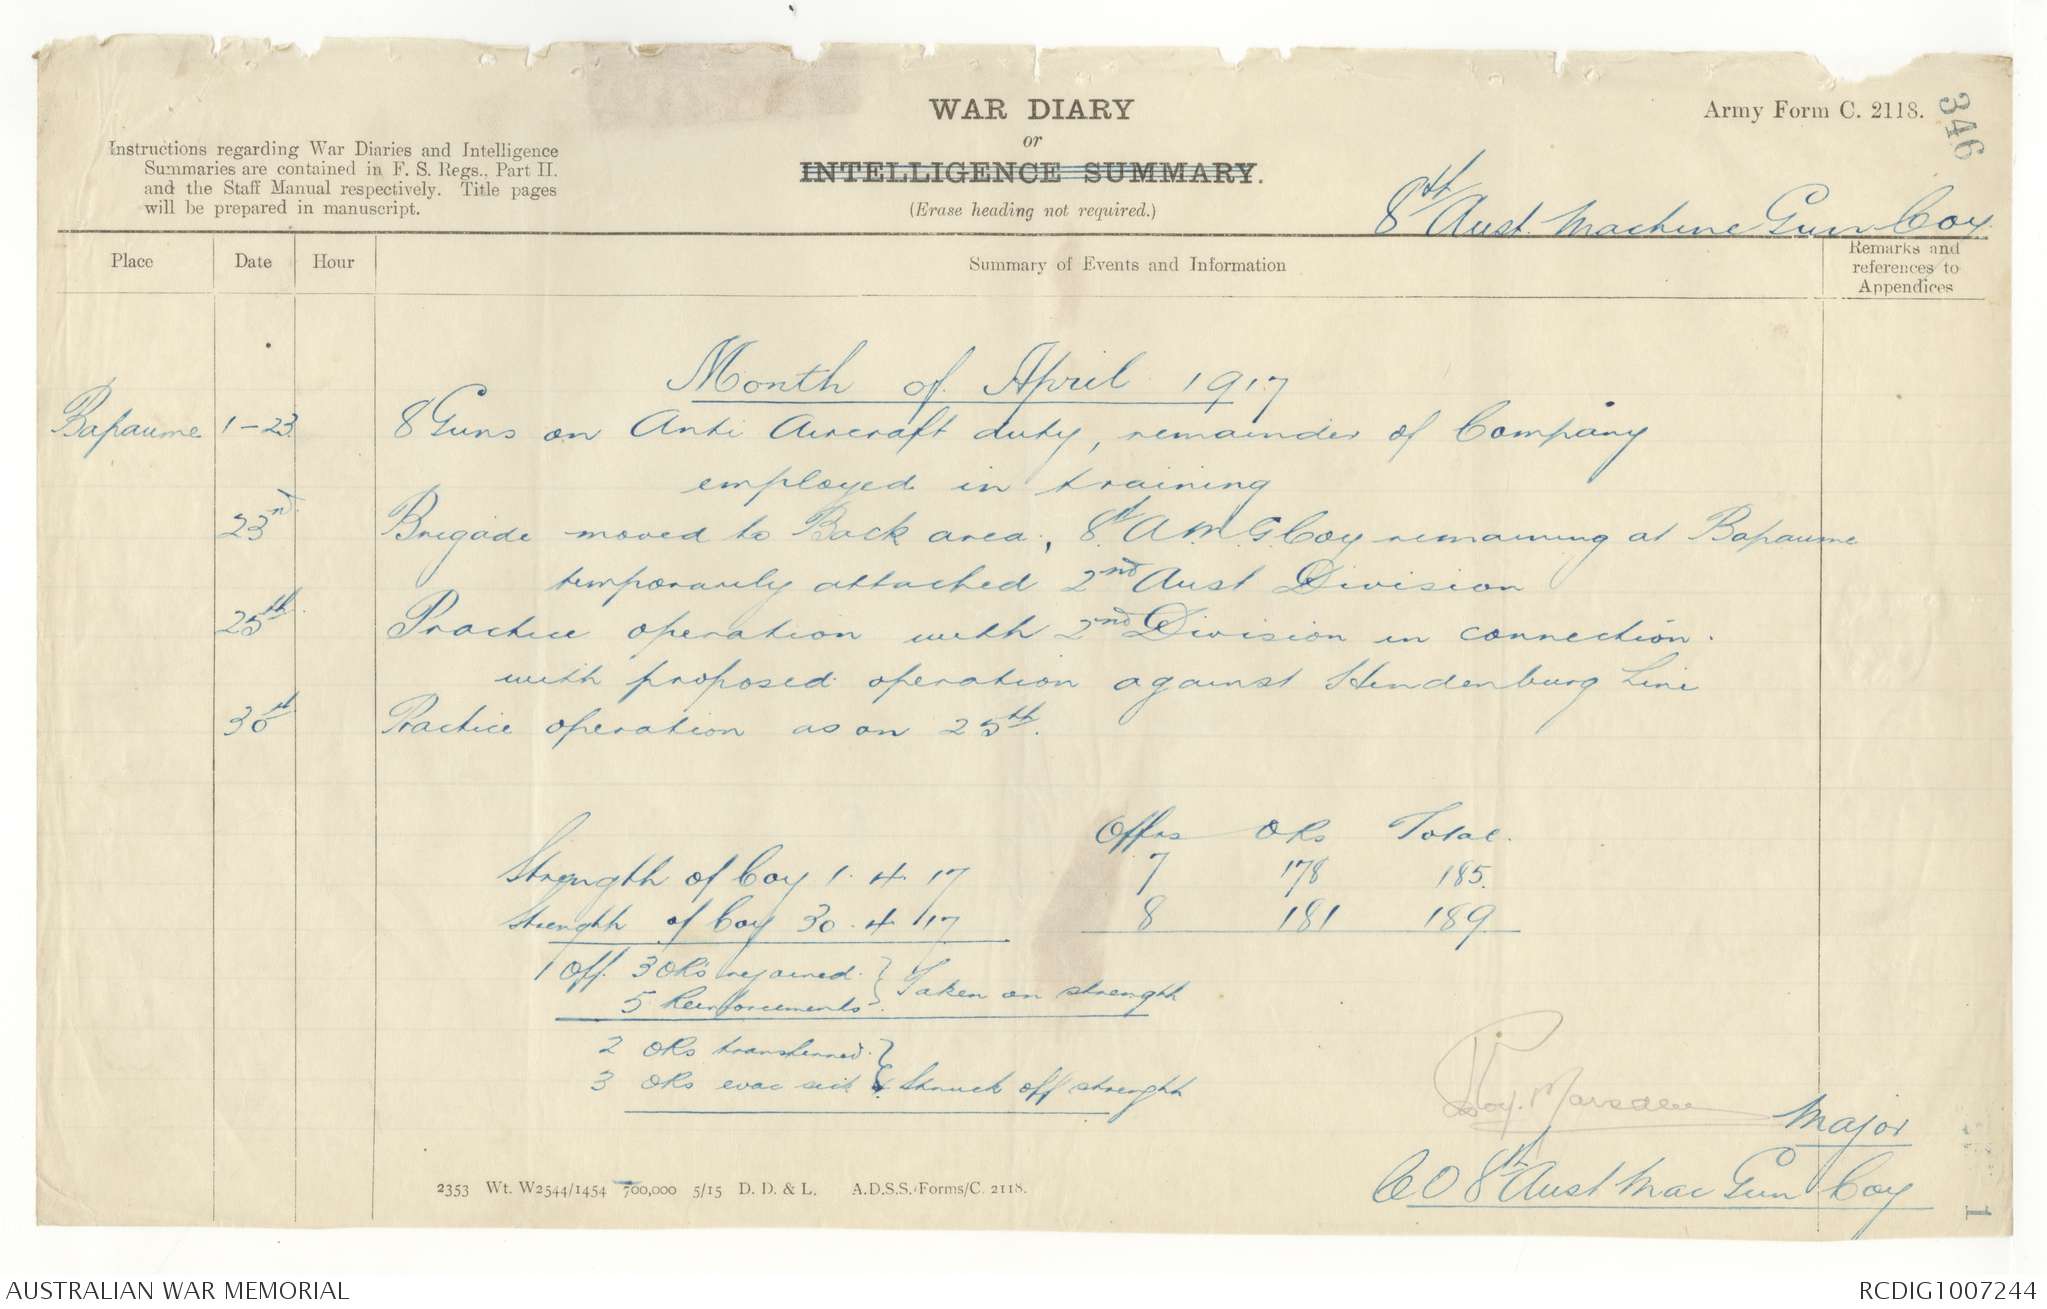 WAR DIARY
or
INTELLIGENCE SUMMARY.
(Erase heading not required.)
Army Form C. 2118.
346
Instructions regarding War Diaries and Intelligence
Summaries are contained in F. S. Regs., Part II.
and the Staff Manual respectively. Title pages
will be prepared in manuscript.
8th Aust. Machine Gun Coy.
Place Date Hour Summary of Events and Information Remarks and
references to
Appendices
Month of April 1917
Bapaume 1-23 8 Guns on Anti Aircraft duty, remainder of Company
employed in training
23rd Brigade moved to Back area, 8th A.M.G.Coy remaining at Bapaume
temporarily attached 2nd Aust Division
25th Practice operation with 2nd Division in connection.
with proposed operation against Hindenburg Line
30th Practice operation as on 25th.
Offrs ORs Total.
Strength of Coy 1. 4. 17 7 178 185.
Strength of Coy 30. 4. 17 8 181 189.
1 Off. 3 ORs rejoined. } Taken on strength
5 Reinforcements.
2 ORs transferred. }
3 ORs evac sick } Struck off strength
Roy. Marsden Major
CO 8th Aust Mac Gun Coy
2353 Wt. W2544/1454 700,000 5/15 D. D. & L. A.D.S.S./Forms/C. 2118.
AUSTRALIAN WAR MEMORIAL
RCDIG1007244